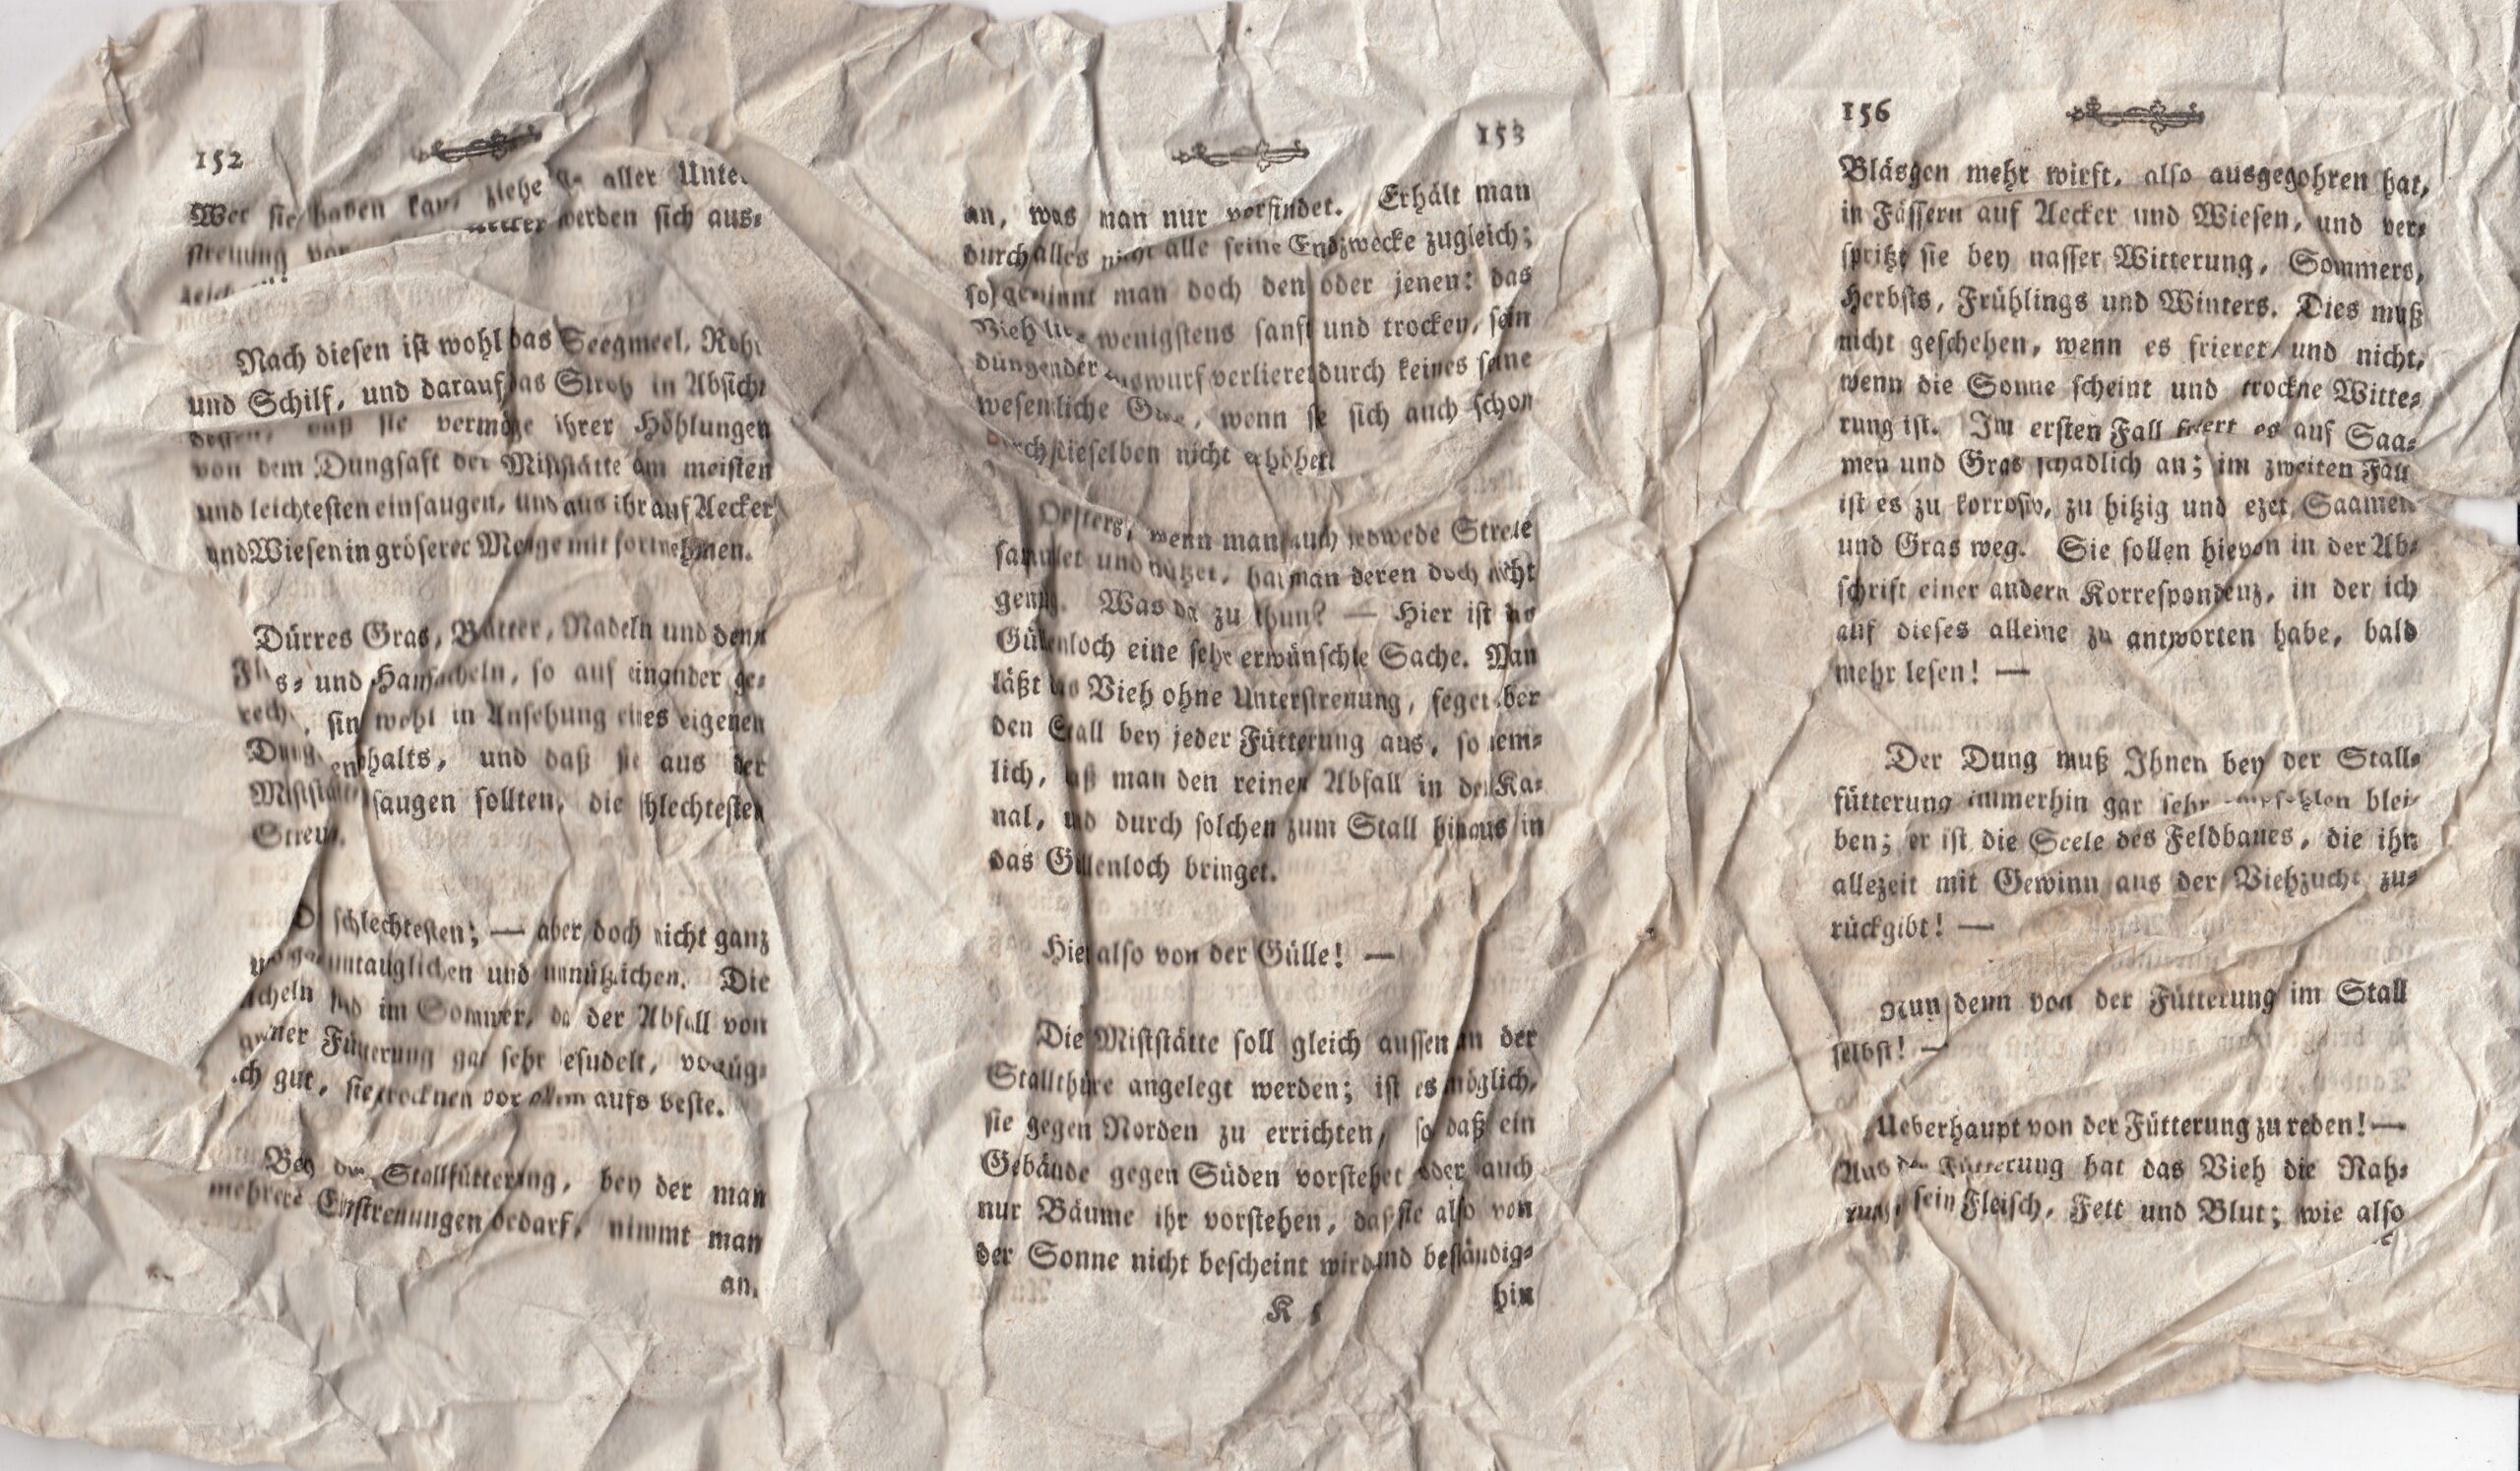 152
Wer sie haben kan, ziehe sie aller Unter-
streuung vor werden sich aus-
Nach diesen ist wohl das Seegmeel, Rohr
und Schilf, und darauf das Stroh in Absicht
dessen, daß sie vermöge ihrer Höhlungen
von dem Dungsaft der Miststätte am meisten
und leichtesten einsaugen, und aus ihr auf Aecker
und Wiesen in gröserer Menge mit fortnehmen.
Dürres Gras, Blätter, Nadeln und denn
und so auf einander ge-
sind wohl in Ansehung eines eigenen
Dungenthalts, und daß sie aus der
Miststätte saugen sollten, die schlechtesten
Streue.
Die schlechtesten; — aber doch nicht ganz
und gar untauglichen und unnützlichen. Die
sind im Sommer, da der Abfall von
grüner Fütterung gar sehr besudelt, vorzüg-
lich gut, sie trocknen vor allem aufs beste.
Bey der Stallfütterung, bey der man
mehrere Einstreuungen bedarf, nimmt man
an,
153
an, was man nur vorfindet. Erhält man
durch alles nicht alle seine Endzwecke zugleich;
so gewinnt man doch den oder jenen: das
Vieh liegt wenigstens sanft und trocken, sein
düngender Auswurf verlieret durch keines seine
wesentliche Güte, wenn sie sich auch schon
durch dieselben nicht erhöhet.
Oefters, wenn man auch jedwede Streue
sammlet und nützet, hat man deren doch nicht
genug. Was da zu thun? — Hier ist das
Güllenloch eine sehr erwünschte Sache. Man
läßt das Vieh ohne Unterstreuung, feget aber
den Stall bey jeder Fütterung aus, so nem-
lich, daß man den reinen Abfall in den Ka-
nal, und durch solchen zum Stall hinaus in
das Güllenloch bringet.
Hier also von der Gülle! —
Die Miststätte soll gleich aussen an der
Stallthüre angelegt werden; ist es möglich,
sie gegen Norden zu errichten, so daß ein
Gebäude gegen Süden vorstehet oder auch
nur Bäume ihr vorstehen, daß sie also von
der Sonne nicht bescheint wird und beständig-
K 5 hin
156
Bläsgen mehr wirft, also ausgegohren hat,
in Fässern auf Aecker und Wiesen, und ver-
spritzt sie bey nasser Witterung, Sommers,
Herbsts, Frühlings und Winters. Dies muß
nicht geschehen, wenn es frieret, und nicht,
wenn die Sonne scheint und trockne Witte-
rung ist. Im ersten Fall friert es auf Saa-
men und Gras schädlich an; im zweiten Fall
ist es zu korrosiv, zu hitzig und ezet Saamen
und Gras weg. Sie sollen hievon in der Ab-
schrift einer andern Korrespondenz, in der ich
auf dieses alleine zu antworten habe, bald
mehr lesen! —
Der Dung muß Ihnen bey der Stall-
fütterung immerhin gar sehr empfohlen blei-
ben; er ist die Seele des Feldbaues, die ihn
allezeit mit Gewinn aus der Viehzucht zu-
rückgibt! —
Nun denn von der Fütterung im Stall
selbst! —
Ueberhaupt von der Fütterung zu reden! —
Aus der Fütterung hat das Vieh die Nah-
rung, sein Fleisch, Fett und Blut; wie also